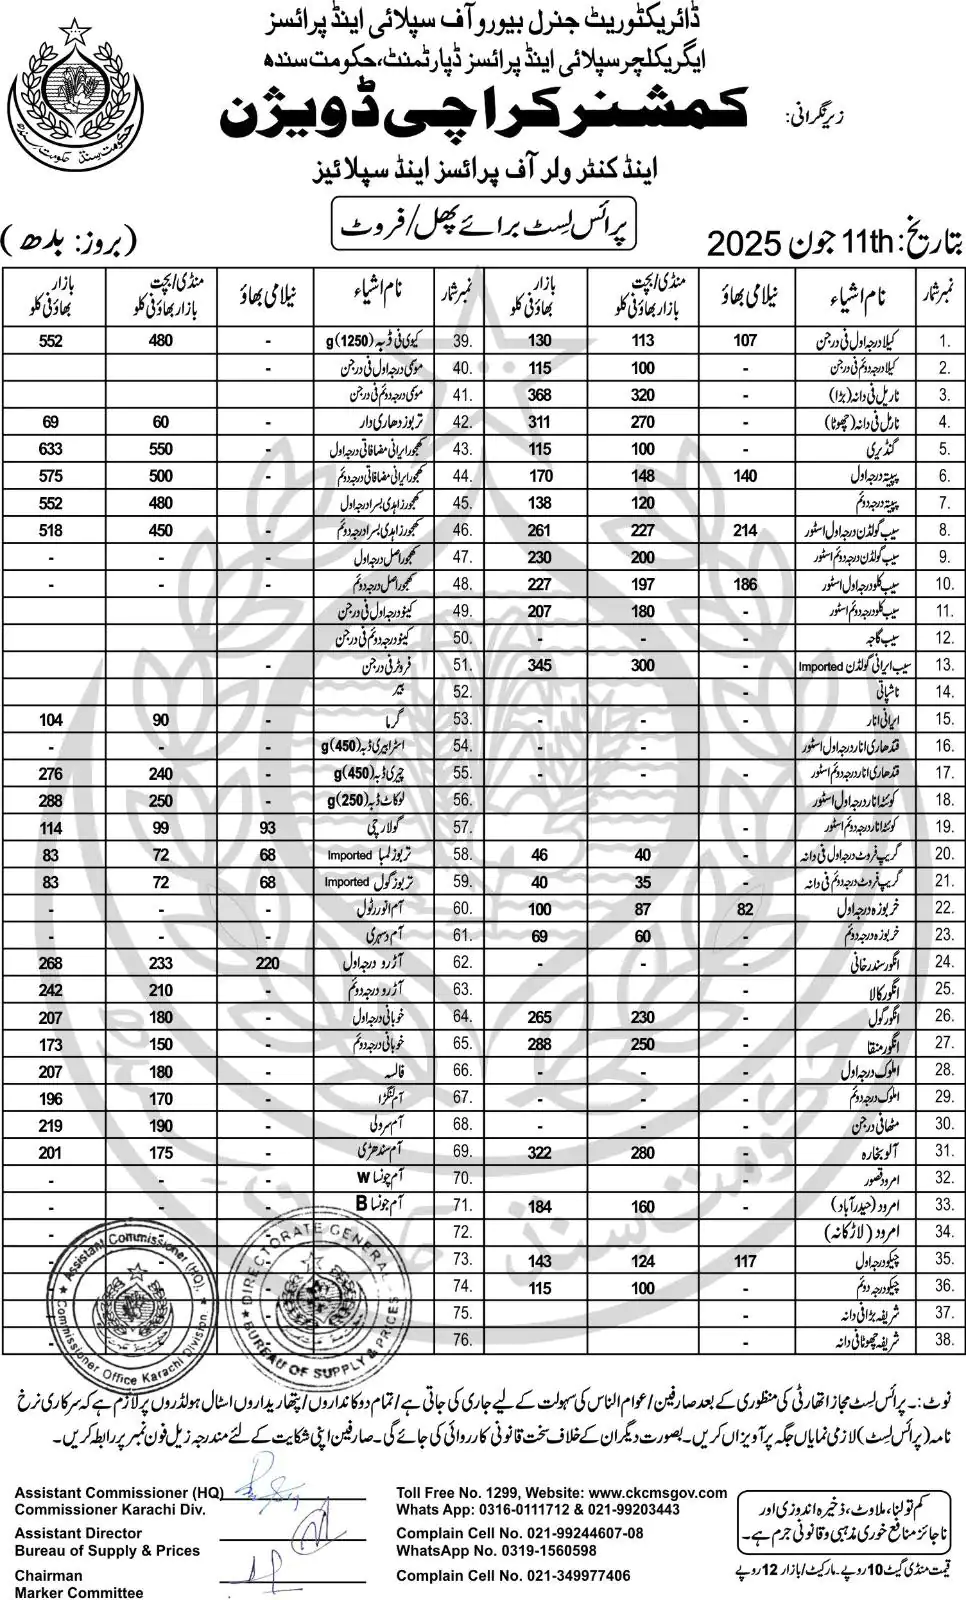 ڈائریکٹوریٹ جنرل بیورو آف سپلائی اینڈ پرائسز
ایگریکلچر سپلائی اینڈ پرائسز ڈپارٹمنٹ، حکومت سندھ
زیر نگرانی: کمشنر کراچی ڈویژن
اینڈ کنٹرولر آف پرائسز اینڈ سپلائیز
پرائس لسٹ برائے پھل/فروٹ
بتاریخ: 11th جون 2025 (بروز: بدھ)
نمبر شمار نام اشیاء نیلامی بھاؤ منڈی/بچت بازار بھاؤ فی کلو بازار بھاؤ فی کلو
1. کیلا درجہ اول فی درجن 107 113 130
2. کیلا درجہ دوئم فی درجن - 100 115
3. ناریل فی دانہ (بڑا) - 320 368
4. ناریل فی دانہ (چھوٹا) - 270 311
5. گنڈیری - 100 115
6. پپیتہ درجہ اول 140 148 170
7. پپیتہ درجہ دوئم - 120 138
8. سیب گولڈن درجہ اول اسٹور 214 227 261
9. سیب گولڈن درجہ دوئم اسٹور - 200 230
10. سیب کلو درجہ اول اسٹور 186 197 227
11. سیب کلو درجہ دوئم اسٹور - 180 207
12. سیب گاجہ - - -
13. سیب ایرانی گولڈن Imported - 300 345
14. ناشپاتی -
15. ایرانی انار - - -
16. قندھاری انار درجہ اول اسٹور - - -
17. قندھاری انار درجہ دوئم اسٹور - - -
18. کوئٹہ انار درجہ اول اسٹور
19. کوئٹہ انار درجہ دوئم اسٹور -
20. گریپ فروٹ درجہ اول فی دانہ - 40 46
21. گریپ فروٹ درجہ دوئم فی دانہ - 35 40
22. خربوزہ درجہ اول 82 87 100
23. خربوزہ درجہ دوئم - 60 69
24. انگور سندرخانی - - -
25. انگور کالا
26. انگور گول - 230 265
27. انگور منقا - 250 288
28. املوک درجہ اول - - -
29. املوک درجہ دوئم - - -
30. مٹھا فی درجن - - -
31. آلو بخارہ - 280 322
32. امرود قصور -
33. امرود (حیدرآباد) - 160 184
34. امرود (لاڑکانہ)
35. چیکو درجہ اول 117 124 143
36. چیکو درجہ دوئم - 100 115
37. شریفہ بڑا فی دانہ -
38. شریفہ چھوٹا فی دانہ -
نمبر شمار نام اشیاء نیلامی بھاؤ منڈی/بچت بازار بھاؤ فی کلو بازار بھاؤ فی کلو
39. کیوی فی ڈبہ (1250)g - 480 552
40. موسمی درجہ اول فی درجن -
41. موسمی درجہ دوئم فی درجن
42. تربوز دھاری دار - 60 69
43. کھجور ایرانی مضافاتی درجہ اول - 550 633
44. کھجور ایرانی مضافاتی درجہ دوئم - 500 575
45. کھجور زاہدی بسرا درجہ اول - 480 552
46. کھجور زاہدی بسرا درجہ دوئم - 450 518
47. کھجور اصل درجہ اول - - -
48. کھجور اصل درجہ دوئم - - -
49. کینو درجہ اول فی درجن -
50. کینو درجہ دوئم فی درجن
51. فروٹر فی درجن -
52. بیر
53. گرما - 90 104
54. اسٹرابیری ڈبہ (450)g - - -
55. چیری ڈبہ (450)g - 240 276
56. لوکاٹ ڈبہ (250)g - 250 288
57. گولارچی 93 99 114
58. تربوز لمبا Imported 68 72 83
59. تربوز گول Imported 68 72 83
60. آم انور رٹول - - -
61. آم دسہری - - -
62. آڑو درجہ اول 220 233 268
63. آڑو درجہ دوئم - 210 242
64. خوبانی درجہ اول - 180 207
65. خوبانی درجہ دوئم - 150 173
66. فالسہ - 180 207
67. آم لنگڑا - 170 196
68. آم سرولی - 190 219
69. آم سندھڑی - 175 201
70. آم چونسا W - - -
71. آم چونسا B - - -
72.
73.
74.
75.
76.
Assistant Commissioner (HQ)
Commissioner Office Karachi Division.
DIRECTORATE GENERAL
BUREAU OF SUPPLY & PRICES
نوٹ:۔ پرائس لسٹ مجاز اتھارٹی کی منظوری کے بعد صارفین/عوام الناس کی سہولت کے لیے جاری کی جاتی ہے/تمام دوکانداروں/پتھاریداروں اسٹال ہولڈروں پر لازم ہے کہ سرکاری نرخ
نامہ (پرائس لسٹ) لازمی نمایاں جگہ پر آویزاں کریں۔ بصورت دیگر ان کے خلاف سخت قانونی کارروائی کی جائے گی۔ صارفین اپنی شکایت کے لئے مندرجہ زیل فون نمبر پر رابطہ کریں۔
Assistant Commissioner (HQ)
Commissioner Karachi Div.
Assistant Director
Bureau of Supply & Prices
Chairman
Marker Committee
Toll Free No. 1299, Website: www.ckcmsgov.com
Whats App: 0316-0111712 & 021-99203443
Complain Cell No. 021-99244607-08
WhatsApp No. 0319-1560598
Complain Cell No. 021-349977406
کم تولنا، ملاوٹ، ذخیرہ اندوزی اور
ناجائز منافع خوری مذہبی و قانونی جرم ہے۔
قیمت منڈی گیٹ 10 روپے۔ مارکیٹ/بازار 12 روپے